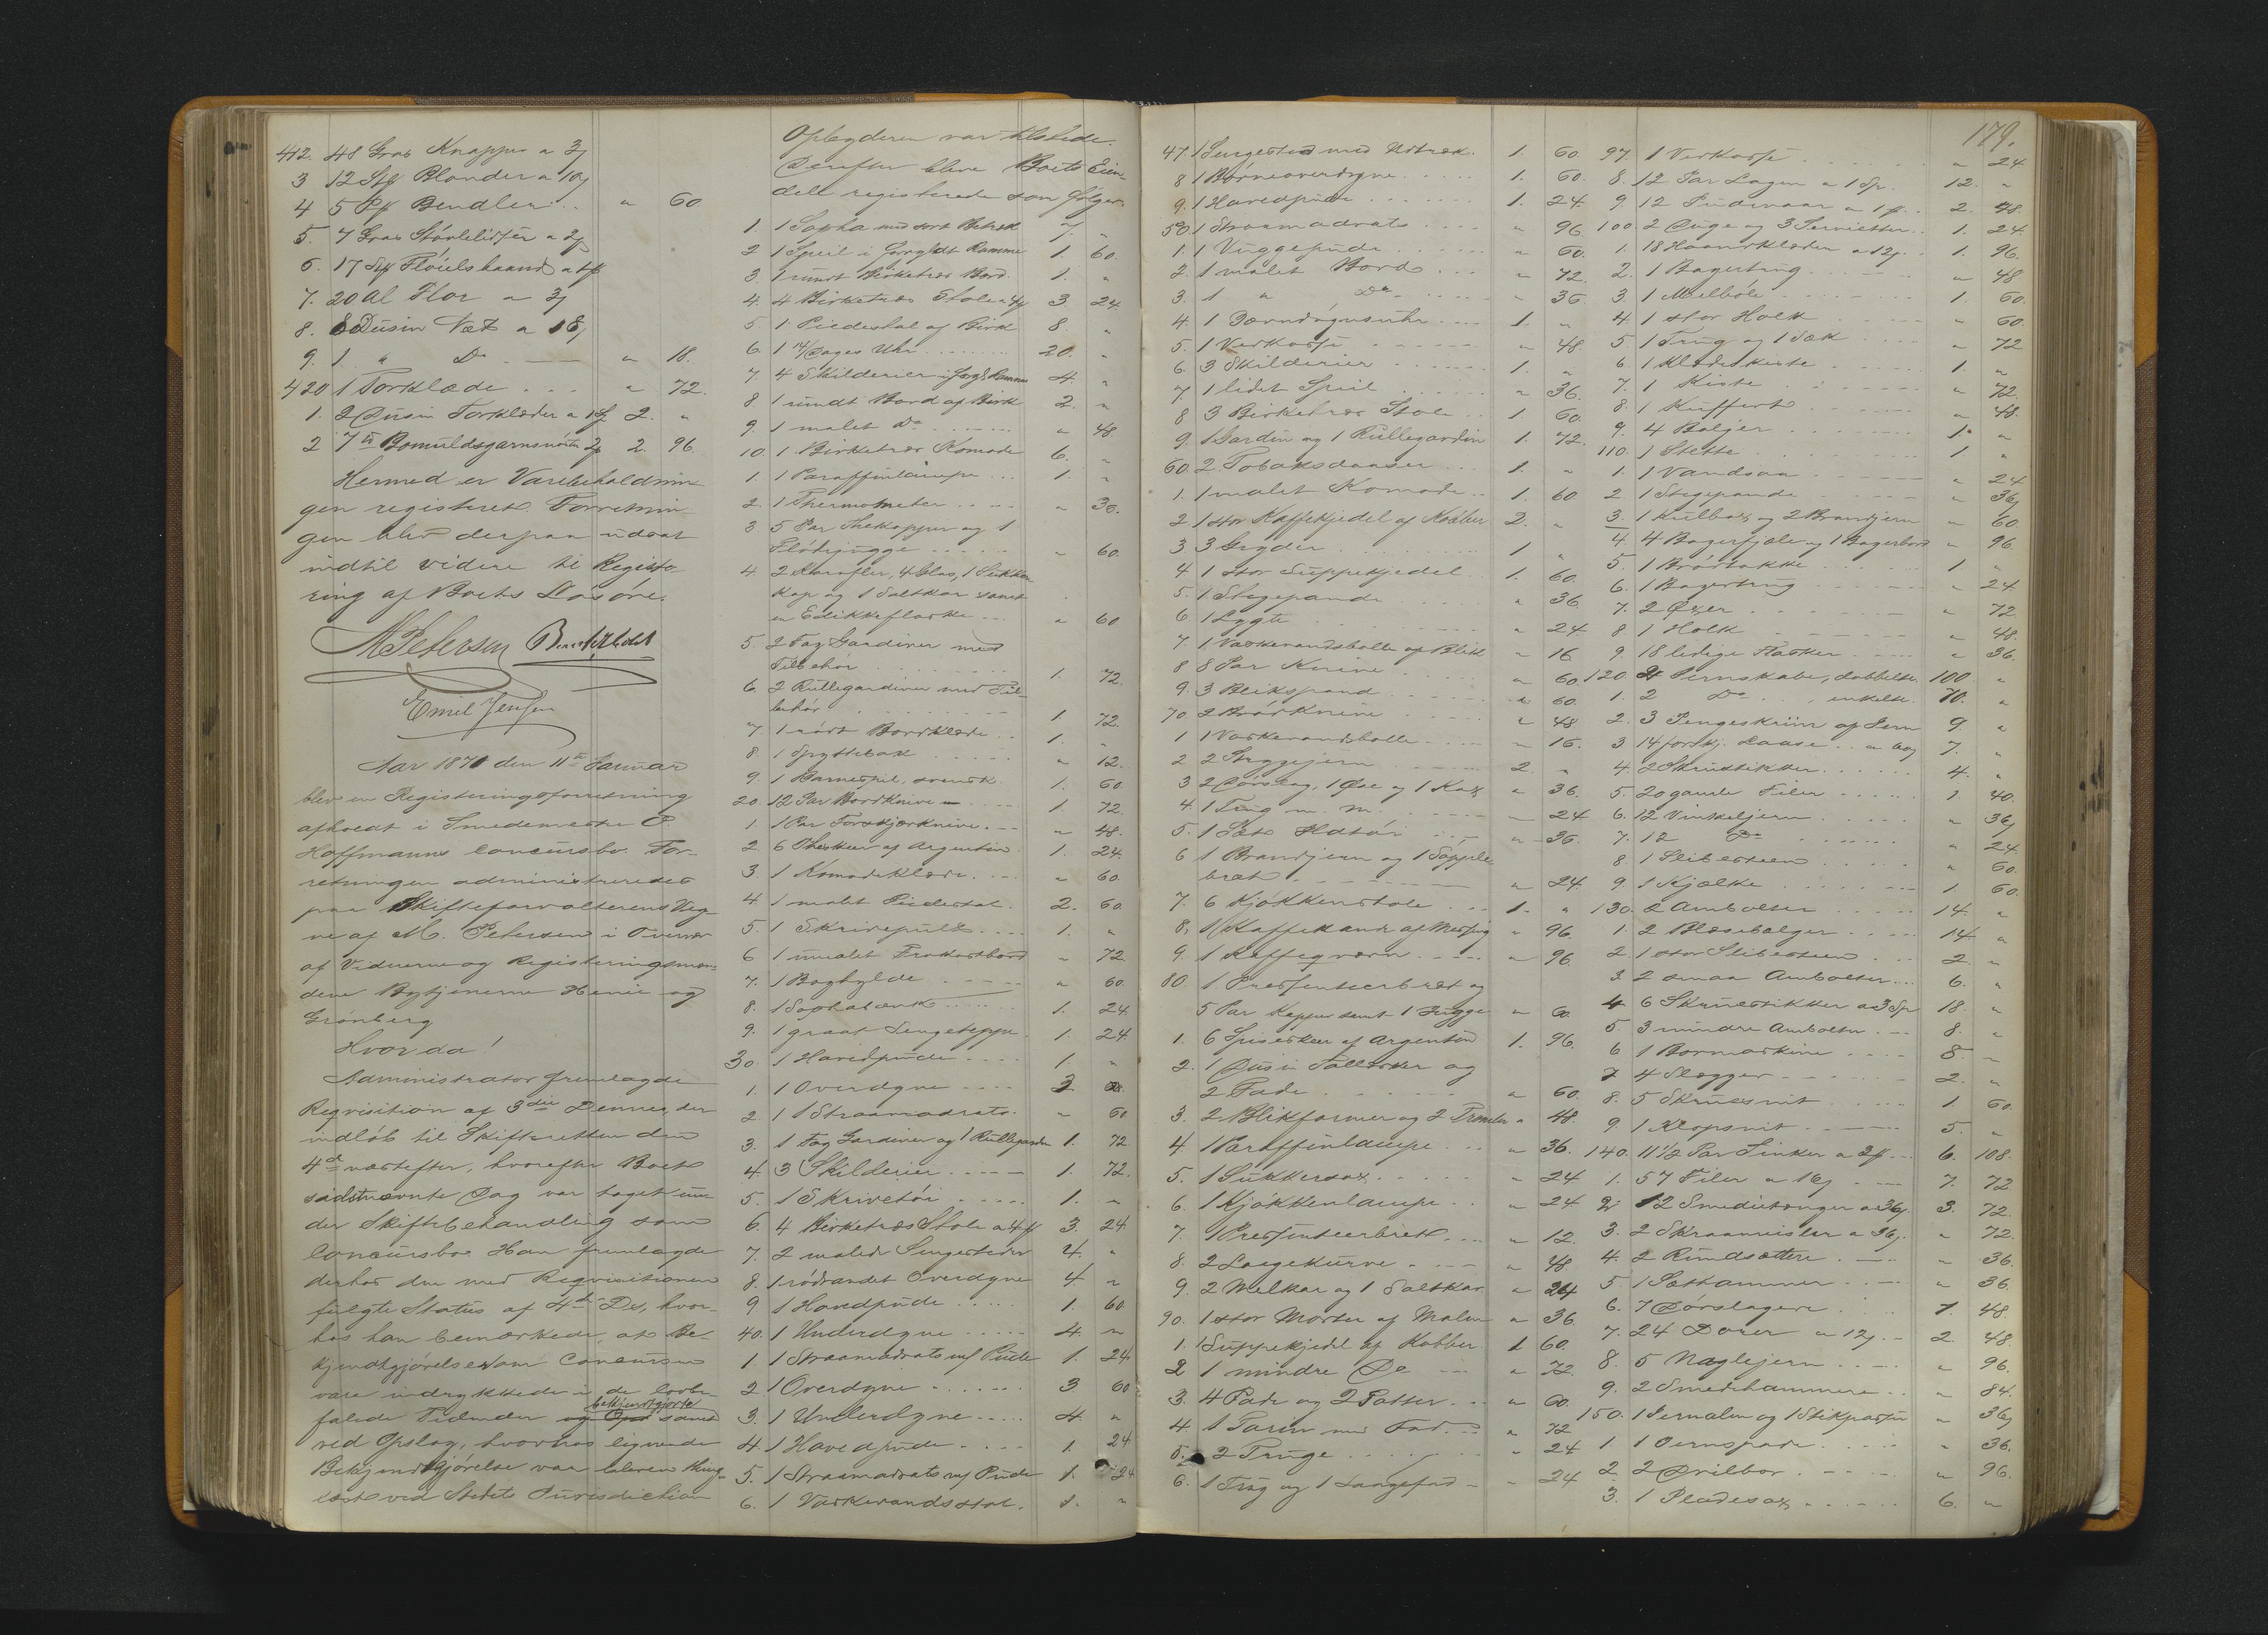 412. 48 Gros Knapper a 3ʒ
3 12 Stk Blonder a 10ʒ
4 5 Pk Bendler .. " 60
5. 7 Gros Støvlelidser a 2ʒ
6. 17 Stk Fløiels baand a 1ʒ
7. 20 Al Flor a 3ʒ
8. 8 Dusin Næt a 18ʒ
9. 1 " Do — " 18.
420 1 Torklæde ... " 72.
1. 2 Dusin Torklæder a 1 Sp 2. "
2 7 Bomuldsgarnsnöste 2. 96.
Hermed er Varebeholdnin-
gen registeret. Forretnin-
gen blev derpaa udsat
indtil videre til Registe-
ring af Boets Løsøre.
M Petersen
Emil Jensen
Aar 1871 den 11te Januar
blev en Registeringsforretning
afholdt i Smedemester P.
Hoffmanns Concursbo. For-
retningen administreredes
paa Skifteforvalterens Veg-
ne af M. Petersen i Overvær
af Vidnerne og Registeringsmæn-
dene Bytjenerne Henie og
Grönberg
Hvorda!
Administrator fremlagde
Reqvisition af 3die Dennes, der
indløb til Skifteretten den
4de næstefter, hvorefter Boet
sidstnævnte Dag var taget un-
der Skiftebehandling som
Concursbo. Han fremlagde
derhos den med Reqvisitionen
fulgte Status af 4de Ds, hvor-
hos han bemærkede, at Be-
kjendtgjørelse om Concursen
vare indrykkede i de lovbe-
falede Tidender bekjendtgjorte samt
ved Opslag, hvorhos lignende
Bekjendtgjørelse var bleven thing-
læst ved Stedets Jurisdiction
Opbyderen var tilstede.
Derefter bleve Boets Eien-
dele registerede som følger:
1. 1 Sopha med sort Betræk 7. "
2 1 Speil i forgyldt Ramme 1. 60.
3. 1 rundt Birketræs Bord 1. "
4. 4 Birketræs Stole a 4 3. 24.
5 1 Piedestal af Birk 8. "
6. 1 14 Dages Uhr 20. "
7. 4 Skilderier i forg. Ramme 4. "
8 1 rundt Bord af Birk 2. "
9. 1 malet Do " 48.
10. 1 Birketræs Komode 6. "
1. 1 Paraffinlampe ... 1. "
2 1 Thermometer " 30.
3. 5 Par Thekopper og 1
Flödejugge " 60.
4. 2 Karafler, 4 Glas, 1 Sukker
Kop og 1 Saltkar samt
en Edikkeflaske ... " 60
5 2 Fag Gardiner med
Tilbehör 1. 72.
6. 2 Rullegardiner med Til-
behör 1. 72.
7 1 rødt Bordklæde 1. "
8 1 Spyttebak " 12.
9. 1 Barnespil, svensk 1. 60
20 12 Par Bordknive 1. 72.
1 1 Par Forskjærknive " 48.
2 6 Theskeer af Argentin 1. 24.
3. 1 Komodeklæde " 60.
4 1 malet Piedestal 2. 60.
5. 1 Skrivepult 1. "
6 1 umalet Frokostbord " 72
7. 1 Boghylde " 60.
8. 1 Sophabænk 1. 24
9. 1 graat Sengeteppe 1. 24.
30. 1 Hovedpude 1. "
1. 1 Overdyne 3
2 1 Straamadrats " 60
3. 1 Fag Gardiner og 1 Rullegardin 1. 72
4. 3 Skilderier 1. 72.
5. 1 Skrivetöi 1. "
6. 4 Birketræs Stole a 4 3. 24.
7. 2 malede Sengesteder 4. "
8. 1 rödrandet Overdyne 4. "
9 1 Hovedpude 1. 60
40. 1 Underdyne 4. "
1. 1 Straamadrats m/ Pude 1. 24
2 1 Overdyne 3. 60
3. 1 Underdyne 4. "
4. 1 Hovedpude 1. 24
5. 1 Straamadrats m/ Pude 1. 24
6. 1 Vaskevandsstol. 1. "
179.
47. 1 Sengested med Udtræk 1. 60.
8 1 Børneoverdyne 1. 60.
9. 1 Hovedpude 1. 24.
50. 1 Straamadrats " 96
1. 1 Vuggepude " 60.
2. 1 malet Bord " 72.
3. 1 " Do " 36.
4. 1 Jævndøgnsuhr 1. "
5. 1 Vedkasse " 48
6. 3 Skilderier 1. "
7 1 lidet Speil " 36.
8 3 Birketræs Stole 1. 60.
9. 1 Gardin og 1 Rullegardin 1. 72.
60. 2 Tobaksdaaser 1. "
1. 1 malet Komode 1. 60
2 1 stor Kaffekjedel af Kobber 2. "
3 3 Gryder 1 "
4 1 stor Suppekjedel 1. 60.
5. 1 Stegepande " 36.
6 1 Lygte " 24
7 1 Vaskevandsbolle af Blik " 16
8 8 Par Knive " 60
9. 3 Blikspand " 60.
70 2 Brödknive " 48
1 1 Vaskevandsbolle " 16.
2 2 Strygejern 2. "
3 2 Dørslag, 1 Øse og 1 Kar " 36.
4. 1 Trug m. m. — 24
5. 1 Sæt Ildtøi " 36.
6 1 Brandjern og 1 Söppele
bræt " 24
7. 6 Kjøkkenstole 1. "
8. 1 Kaffekande af Messing " 96.
9. 1 Kaffeqværn " 96.
80. 1 Presenteerbræt og
5 Par Kopper samt 1 Jugge " 60.
1. 6 Spiseskeer af Argentin 1. 96.
2. 1 Dusin Tallerker og
2 Fade " 60.
3. 2 Blikformer og 2 " 48.
4 1 Paraffinlampe " 36.
5. 1 Sukkersax " 24
6. 1 Kjøkkenlampe " 24
7. 1 Presenteerbret " 12.
8. 2 Lægekurve " 48
9. 2 Melkar og 1 Saltkar " 24
90. 1 stor Morter af Malm " 36
1. 1 Suppekjedel af Kobber 1 60.
2 1 mindre Do " 72.
3. 4 Fade og 2 Potter " 60.
4 1 Terrin med Fad " 72
5. 2 Truge " 24
6. 1 Trug og 1 Langefad " 24
97 1 Vedkasse " 24
8. 12 Par Lagen a 1 Sp. 12. "
9 12 Pudevaar 2. 48.
100 2 Duge og 3 Servietter 1. 24
1. 18 Haandklæder a 12ʒ 1. 96.
2. 1 Bagertrug " 48
3. 1 Melböle 1. 60.
4. 1 stor Holk " 60.
5 1 Trug og 1 Sæk " 72
6 1 Klædeskiste 1. "
7. 1 Kiste " 72.
8. 1 Kuffert " 48.
9. 4 Baljer 1. "
110. 1 Støtte 1 "
1. 1 Vandsaa " 24
2 1 Stegepande " 36
3. 1 Kulbox og 2 Brandjern " 60
4. 4 Bagerfjæle og 1 Bagerbord " 96
5. 1 Brödtakke 1 "
6. 1 Bagertrug " 24
7. 2 Øxer " 72
8 1 Holk " 48.
9 18 ledige Flasker " 36.
120 2 Jernskabe, dobbelte 100 "
1. 2 Do , enkelte. 70. "
2. 3 Pengeskrin af Jern 9. "
3 14 forskj. Laase a 60ʒ 7. "
4. 2 Skruestikker 4. "
5. 20 gamle Filer 1. 40.
6. 12 Vinkeljern " 36
7. 12 Do " 24.
8 1 Slibesteen " 60.
9. 1 Kjælke 1. 60.
130. 2 Ambolter 14. "
1. 2 Blæsebælger 14 "
2. 1 stor Slibesteen 2. "
3. 2 smaa Ambolter 6. "
4. 6 Skruestikker a 3 Sp 18. "
5. 3 mindre Ambolter 8. "
6 1 Bormaskine 8. "
7 4 Slægger 2. "
8. 5 Skruesnit 1. 60.
9. 1 Klopsnit 5. "
140. 11½ Par Sinker a 2 6. 108.
1. 57 Filer a 16ʒ 7. 72
2. 12 Smedetænger a 36ʒ 3. 72.
3. 2 Skraameisler a 36ʒ " 72.
4. 2 Rundsættere " 36.
5 1 Sæthammer " 36.
6. 7 Dörslagere 1. 48.
7. 24 Dorer a 12ʒ 2. 48.
8. 5 Naglejern " 96.
9. 2 Smedehammere " 84.
150. 1 Jernalen og 1 Stikpasser " 36
1. 1 Jernspade " 36.
2. 2 Drilbor " 96.
3. 1 Pladesax 6. "